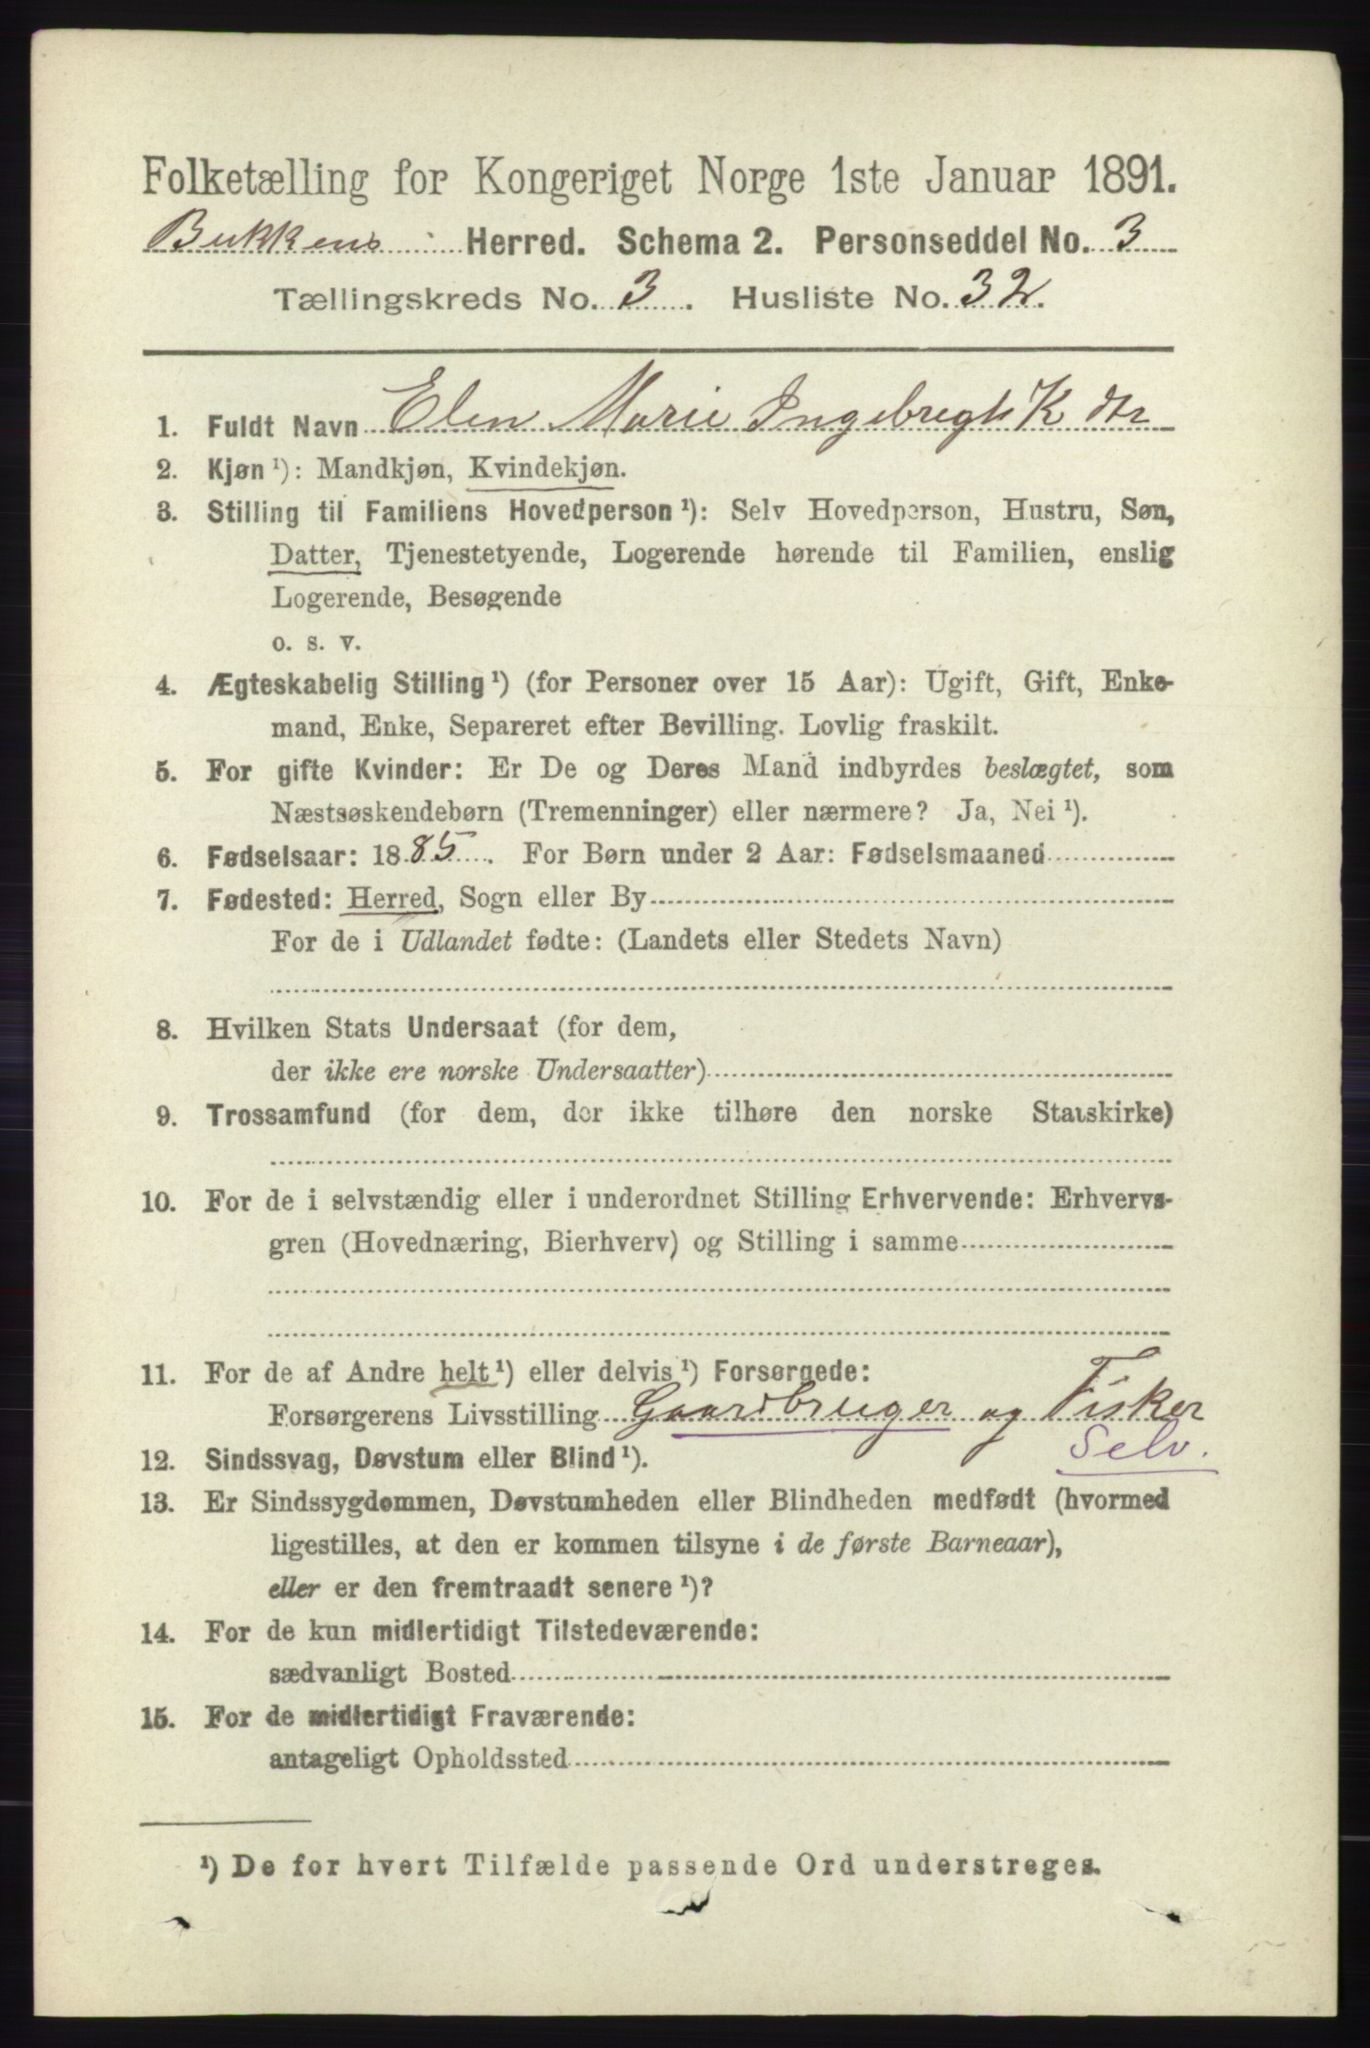 Folketælling for Kongeriget Norge 1ste Januar 1891.
Bukkens Herred. Schema 2. Personseddel No. 3
Tællingskreds No. 3. Husliste No. 32.
1. Fuldt Navn Elen Marie Ingebregts K dtr
2. Kjøn ¹): Mandkjøn, Kvindekjøn.
3. Stilling til Familiens Hovedperson ¹): Selv Hovedperson, Hustru, Søn,
Datter, Tjenestetyende, Logerende hørende til Familien, enslig
Logerende, Besøgende
o. s. v.
4. Ægteskabelig Stilling ¹) (for Personer over 15 Aar): Ugift, Gift, Enke-
mand, Enke, Separeret efter Bevilling. Lovlig fraskilt.
5. For gifte Kvinder: Er De og Deres Mand indbyrdes beslægtet, som
Næstsøskendebørn (Tremenninger) eller nærmere? Ja, Nei ¹).
6. Fødselsaar: 1885. For Børn under 2 Aar: Fødselsmaaned
7. Fødested: Herred, Sogn eller By
For de i Udlandet fødte: (Landets eller Stedets Navn)
8. Hvilken Stats Undersaat (for dem,
der ikke ere norske Undersaatter)
9. Trossamfund (for dem, der ikke tilhøre den norske Statskirke)
10. For de i selvstændig eller i underordnet Stilling Erhvervende: Erhvervs-
gren (Hovednæring, Bierhverv) og Stilling i samme
11. For de af Andre helt ¹) eller delvis ¹) Forsørgede:
Forsørgerens Livsstilling Gaardbruger og Fisker
Selv.
12. Sindssvag, Døvstum eller Blind ¹).
13. Er Sindssygdommen, Døvstumheden eller Blindheden medfødt (hvormed
ligestilles, at den er kommen tilsyne i de første Barneaar),
eller er den fremtraadt senere ¹)?
14. For de kun midlertidigt Tilstedeværende:
sædvanligt Bosted
15. For de midlertidigt Fraværende:
antageligt Opholdssted
¹) De for hvert Tilfælde passende Ord understreges.